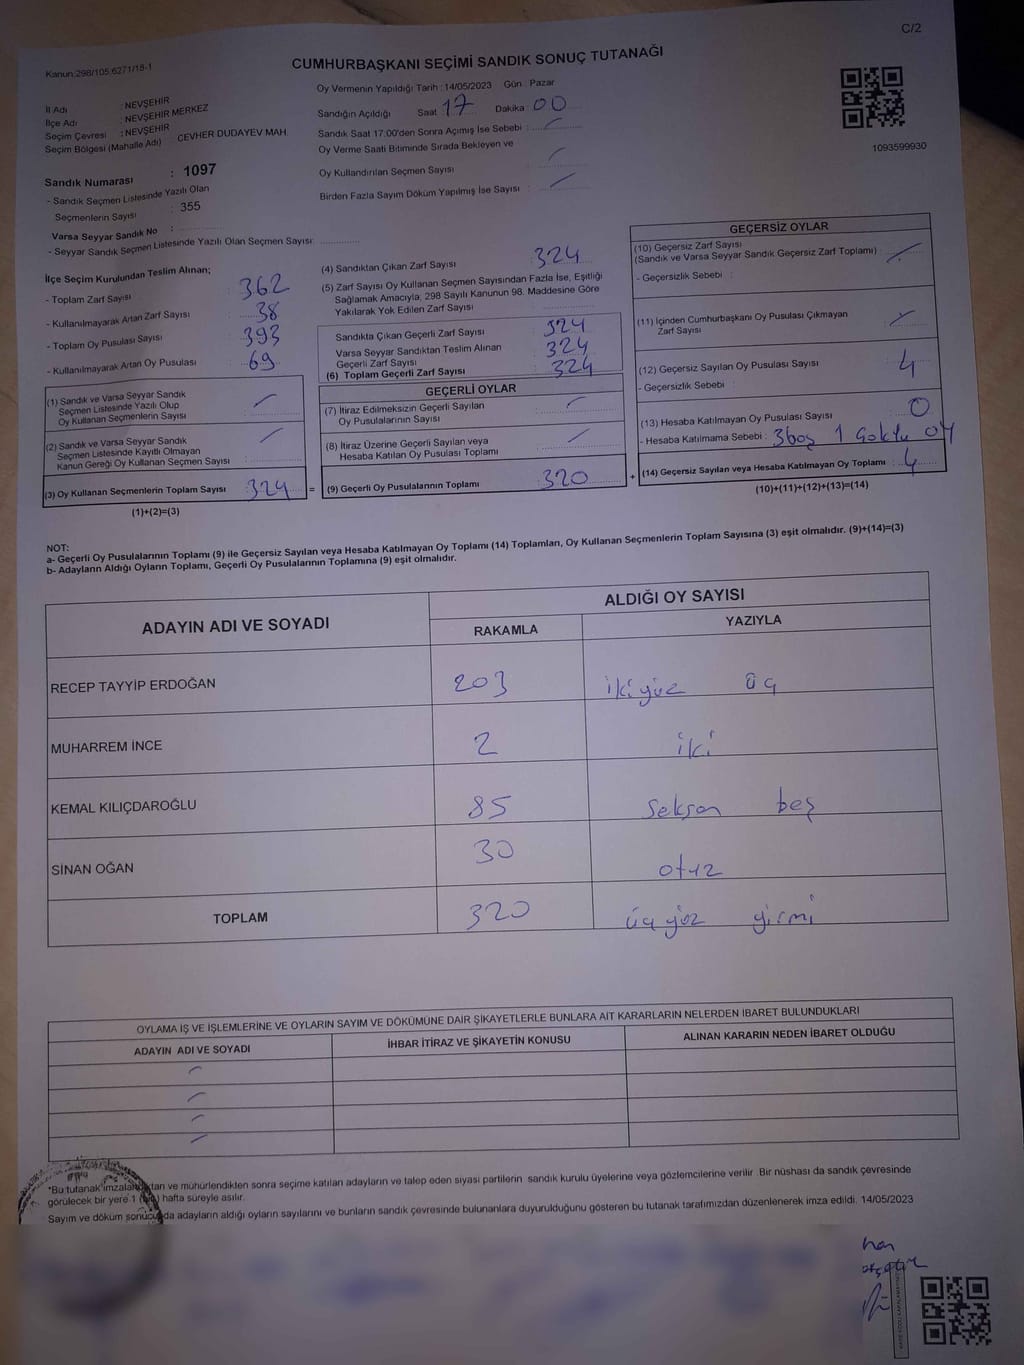 C/2
Kanun:298/105,6271/15-1
CUMHURBAŞKANI SEÇİMİ SANDIK SONUÇ TUTANAĞI
İl Adı : NEVŞEHİR
İlçe Adı : NEVŞEHİR MERKEZ
Seçim Çevresi : NEVŞEHİR
Seçim Bölgesi (Mahalle Adı) CEVHER DUDAYEV MAH.
Sandık Numarası : 1097
- Sandık Seçmen Listesinde Yazılı Olan
Seçmenlerin Sayısı : 355
Varsa Seyyar Sandık No :
- Seyyar Sandık Seçmen Listesinde Yazılı Olan Seçmen Sayısı:
Oy Vermenin Yapıldığı Tarih : 14/05/2023 Gün : Pazar
Sandığın Açıldığı Saat : 17 Dakika : 00
Sandık Saat 17:00'den Sonra Açımış İse Sebebi :
Oy Verme Saati Bitiminde Sırada Bekleyen ve
Oy Kullandırılan Seçmen Sayısı
Birden Fazla Sayım Döküm Yapılmış İse Sayısı :
1093599930
İlçe Seçim Kurulundan Teslim Alınan;
- Toplam Zarf Sayısı : 362
- Kullanılmayarak Artan Zarf Sayısı : 38
- Toplam Oy Pusulası Sayısı : 393
- Kullanılmayarak Artan Oy Pusulası : 69
(1) Sandık ve Varsa Seyyar Sandık
Seçmen Listesinde Yazılı Olup
Oy Kullanan Seçmenlerin Sayısı
(2) Sandık ve Varsa Seyyar Sandık
Seçmen Listesinde Kayıtlı Olmayan
Kanun Gereği Oy Kullanan Seçmen Sayısı :
(3) Oy Kullanan Seçmenlerin Toplam Sayısı : 324 =
(1)+(2)=(3)
(4) Sandıktan Çıkan Zarf Sayısı : 324
(5) Zarf Sayısı Oy Kullanan Seçmen Sayısından Fazla İse, Eşitliği
Sağlamak Amacıyla; 298 Sayılı Kanunun 98. Maddesine Göre
Yakılarak Yok Edilen Zarf Sayısı :
Sandıkta Çıkan Geçerli Zarf Sayısı : 324
Varsa Seyyar Sandıktan Teslim Alınan
Geçerli Zarf Sayısı : 324
(6) Toplam Geçerli Zarf Sayısı : 324
GEÇERLİ OYLAR
(7) İtiraz Edilmeksizin Geçerli Sayılan
Oy Pusulalarının Sayısı
(8) İtiraz Üzerine Geçerli Sayılan veya
Hesaba Katılan Oy Pusulası Toplamı
(9) Geçerli Oy Pusulalarının Toplamı : 320 +
GEÇERSİZ OYLAR
(10) Geçersiz Zarf Sayısı
(Sandık ve Varsa Seyyar Sandık Geçersiz Zarf Toplamı) :
- Geçersizlik Sebebi :
(11) İçinden Cumhurbaşkanı Oy Pusulası Çıkmayan
Zarf Sayısı
(12) Geçersiz Sayılan Oy Pusulası Sayısı : 4
- Geçersizlik Sebebi :
(13) Hesaba Katılmayan Oy Pusulası Sayısı : 0
- Hesaba Katılmama Sebebi : 3boş 1 Çoklu oy
(14) Geçersiz Sayılan veya Hesaba Katılmayan Oy Toplamı : 4
(10)+(11)+(12)+(13)=(14)
NOT:
a- Geçerli Oy Pusulalarının Toplamı (9) ile Geçersiz Sayılan veya Hesaba Katılmayan Oy Toplamı (14) Toplamları, Oy Kullanan Seçmenlerin Toplam Sayısına (3) eşit olmalıdır. (9)+(14)=(3)
b- Adayların Aldığı Oyların Toplamı, Geçerli Oy Pusulalarının Toplamına (9) eşit olmalıdır.
ADAYIN ADI VE SOYADI
ALDIĞI OY SAYISI
RAKAMLA YAZIYLA
RECEP TAYYİP ERDOĞAN 203 ikiyüz üç
MUHARREM İNCE 2 iki
KEMAL KILIÇDAROĞLU 85 Seksen beş
SİNAN OĞAN 30 otuz
TOPLAM 320 üçyüz yirmi
OYLAMA İŞ VE İŞLEMLERİNE VE OYLARIN SAYIM VE DÖKÜMÜNE DAİR ŞİKAYETLERLE BUNLARA AİT KARARLARIN NELERDEN İBARET BULUNDUKLARI
ADAYIN ADI VE SOYADI İHBAR İTİRAZ VE ŞİKAYETİN KONUSU ALINAN KARARIN NEDEN İBARET OLDUĞU
*Bu tutanak imzalandıktan ve mühürlendikten sonra seçime katılan adayların ve talep eden siyasi partilerin sandık kurulu üyelerine veya gözlemcilerine verilir. Bir nüshası da sandık çevresinde
görülecek bir yere 1 hafta süreyle asılır.
Sayım ve döküm sonucunda adayların aldığı oyların sayılarını ve bunların sandık çevresinde bulunanlara duyurulduğunu gösteren bu tutanak tarafımızdan düzenlenerek imza edildi. 14/05/2023